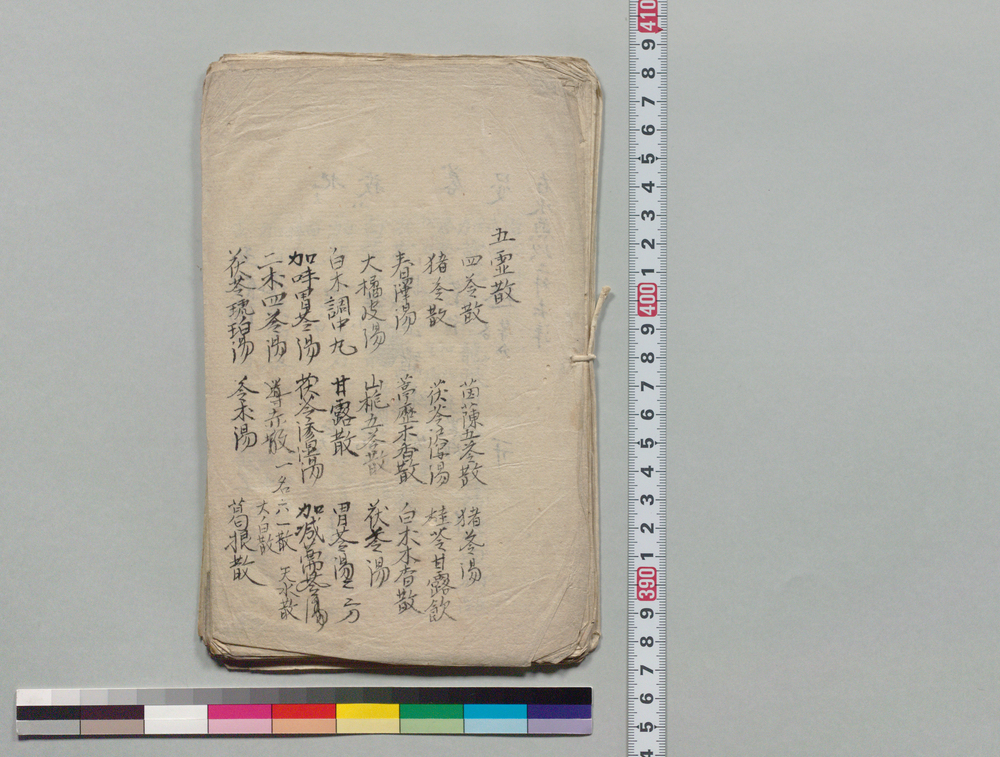 五霊散
四苓散 茵陳五苓散 猪苓湯
猪苓散 茯苓沢瀉湯 桂苓甘露飲
春澤湯 葶藶木香散 白朮木香散
大橘皮湯 山梔五苓散 茯苓湯
白朮調中丸 甘露散 胃苓湯 二方
加味胃苓湯 茯苓滲湿湯 加減胃苓湯
二朮四苓湯 導赤散 一名六一散 天水散
太白散
茯苓琥珀湯 苓朮湯 葛根散
410
9
8
7
6
5
4
3
2
1
400
9
8
7
6
5
4
3
2
1
390
9
8
7
6
5
4